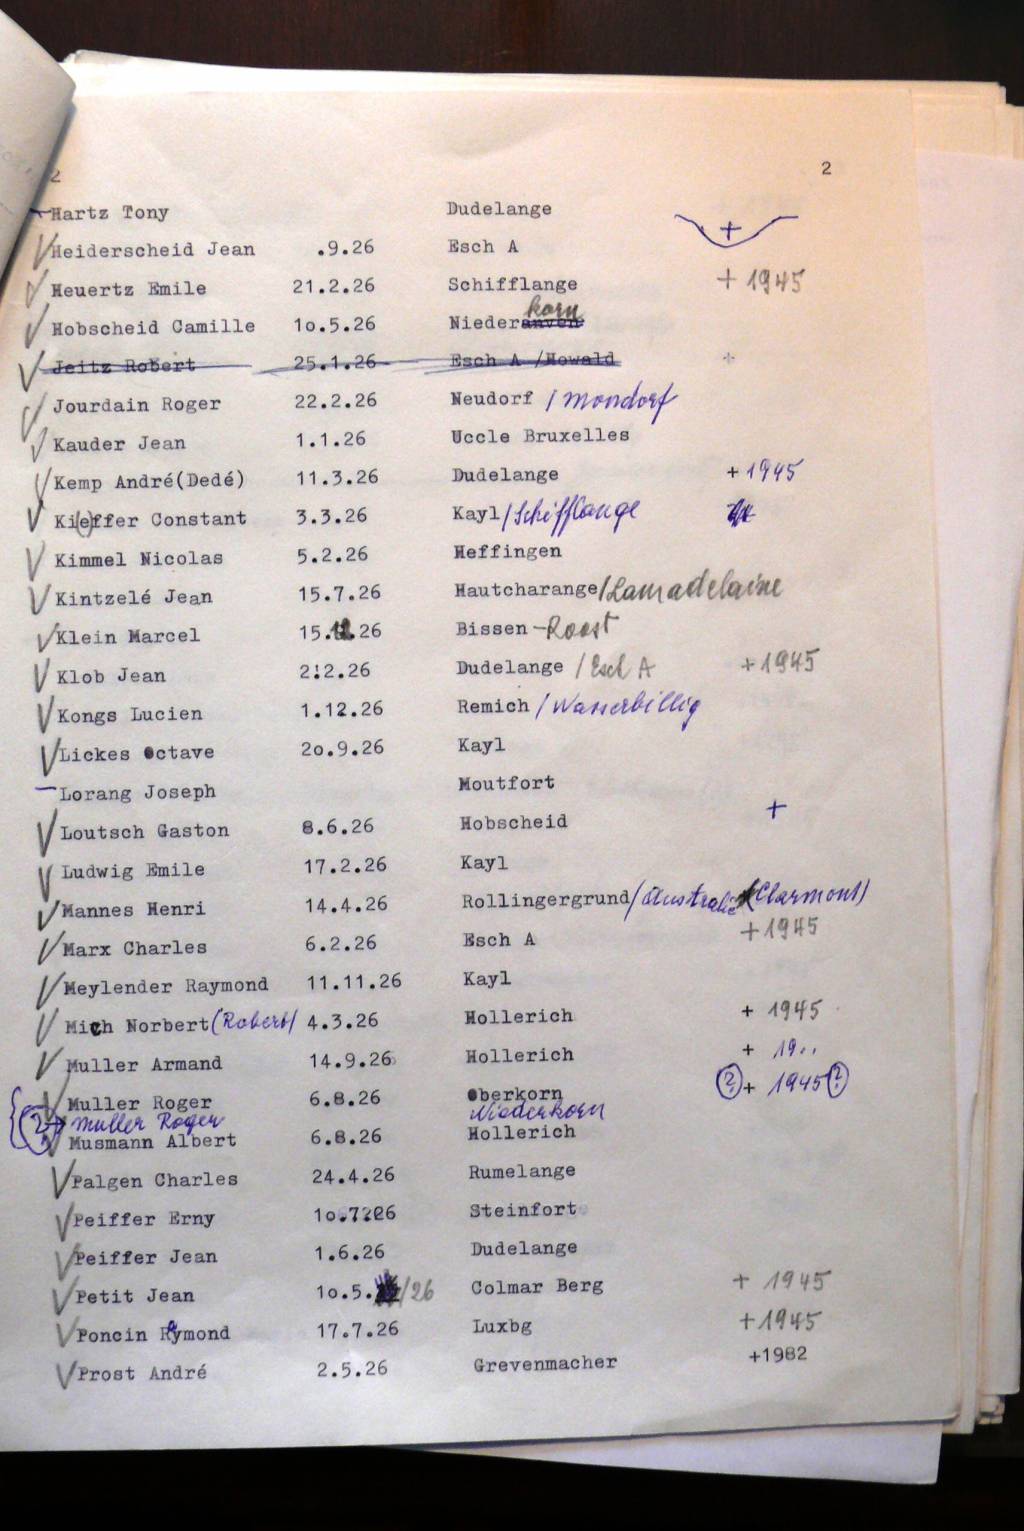 2 2
Hartz Tony Dudelange +
Heiderscheid Jean .9.26 Esch A
Heuertz Emile 21.2.26 Schifflange + 1945
Hobscheid Camille 1o.5.26 Niederanven korn
Jeitz Robert 25.1.26 Esch A /Howald +
Jourdain Roger 22.2.26 Neudorf / Mondorf
Kauder Jean 1.1.26 Uccle Bruxelles
Kemp André(Dedé) 11.3.26 Dudelange + 1945
Ki(e)ffer Constant 3.3.26 Kayl /Schifflange
Kimmel Nicolas 5.2.26 Heffingen
Kintzelé Jean 15.7.26 Hautcharange/Lamadelaine
Klein Marcel 15.12.26 Bissen - Roost
Klob Jean 2!2.26 Dudelange / Esch A + 1945
Kongs Lucien 1.12.26 Remich / Wasserbillig
Lickes Octave 2o.9.26 Kayl
Lorang Joseph Moutfort +
Loutsch Gaston 8.6.26 Hobscheid
Ludwig Emile 17.2.26 Kayl
Mannes Henri 14.4.26 Rollingergrund/Australie (Clarmont)
Marx Charles 6.2.26 Esch A + 1945
Meylender Raymond 11.11.26 Kayl
Mich Norbert (Robert) 4.3.26 Hollerich + 1945
Muller Armand 14.9.26 Hollerich + 19..
Muller Roger 6.8.26 Oberkorn ? + 1945 ?
? Muller Roger Niederkorn
Musmann Albert 6.8.26 Hollerich
Palgen Charles 24.4.26 Rumelange
Peiffer Erny 1o.7.26 Steinfort
Peiffer Jean 1.6.26 Dudelange
Petit Jean 1o.5. /26 Colmar Berg + 1945
Poncin Raymond 17.7.26 Luxbg + 1945
Prost André 2.5.26 Grevenmacher +1982